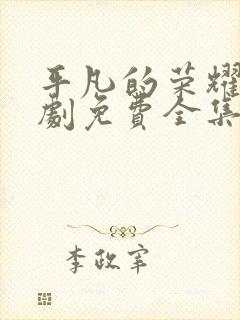 平凡的荣耀
劇免費全集
李政宰